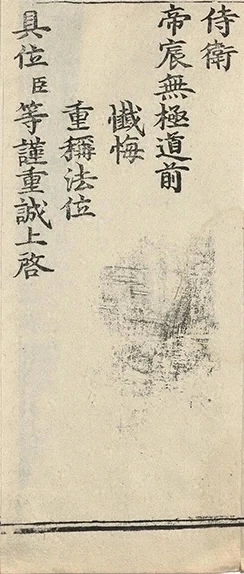 侍衛
帝宸無極道前
懺悔
重稱法位
具位臣等謹重誠上啓